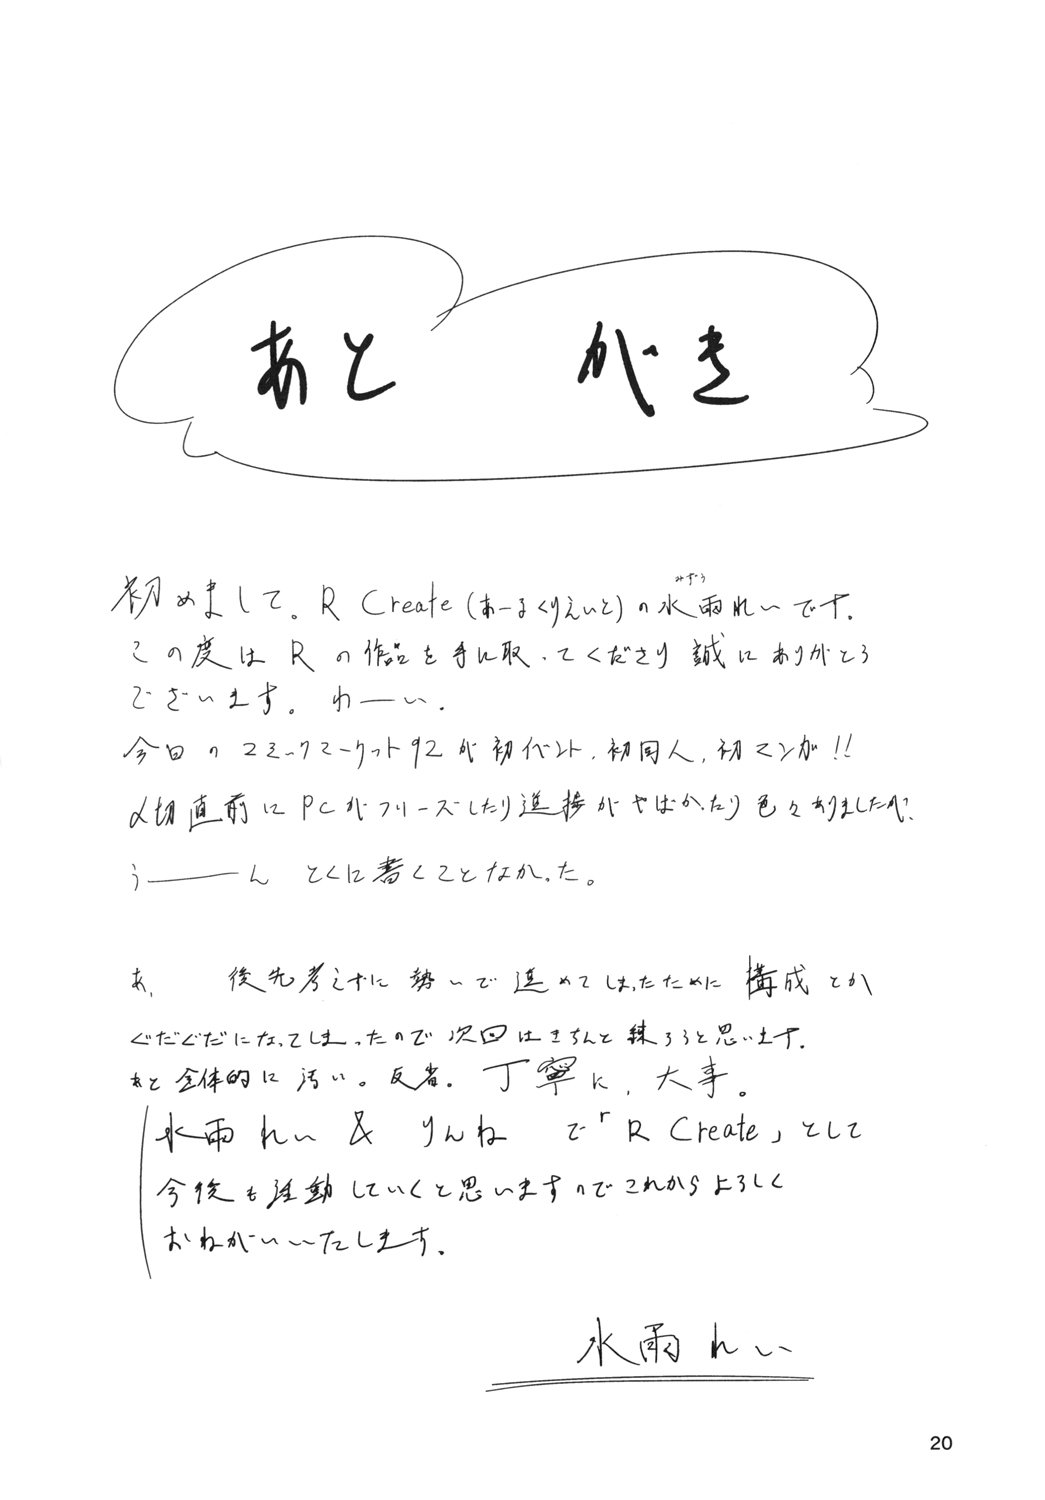 あとがき
初めまして。R Create(あーるくりえいと)の水雨れいです.
みずう
この度は R の作品を手に取ってくださり 誠にありがとう
ございます。 わーい.
今回のコミックマーケット92が初イベント, 初同人, 初マンガ!!
〆切直前にPCがフリーズしたり進捗がやばかったり色々ありましたが,
う――――ん とくに書くことなかった。
あ, 後先考えずに勢いで進めてしまったために構成とか
ぐだぐだになってしまったので次回はきちんと練ろうと思います.
あと全体的に汚い。反省. 丁寧に, 大事。
水雨れい & りんね で「R Create」として
今後も活動していくと思いますのでこれからよろしく
おねがいいたします.
水雨れい
20